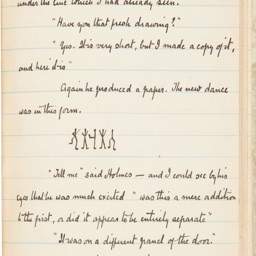 under the line which I had already seen.
"Have you that fresh drawing?"
"Yes. It is very short, but I made a copy of it,
and here it is"
Again he produced a paper. The new dance
was in this form.
"Tell me" said Holmes — and I could see by his
eyes that he was much excited "was this a mere addition
to the first, or did it appear to be entirely separate"
"It was on a different panel of the door."